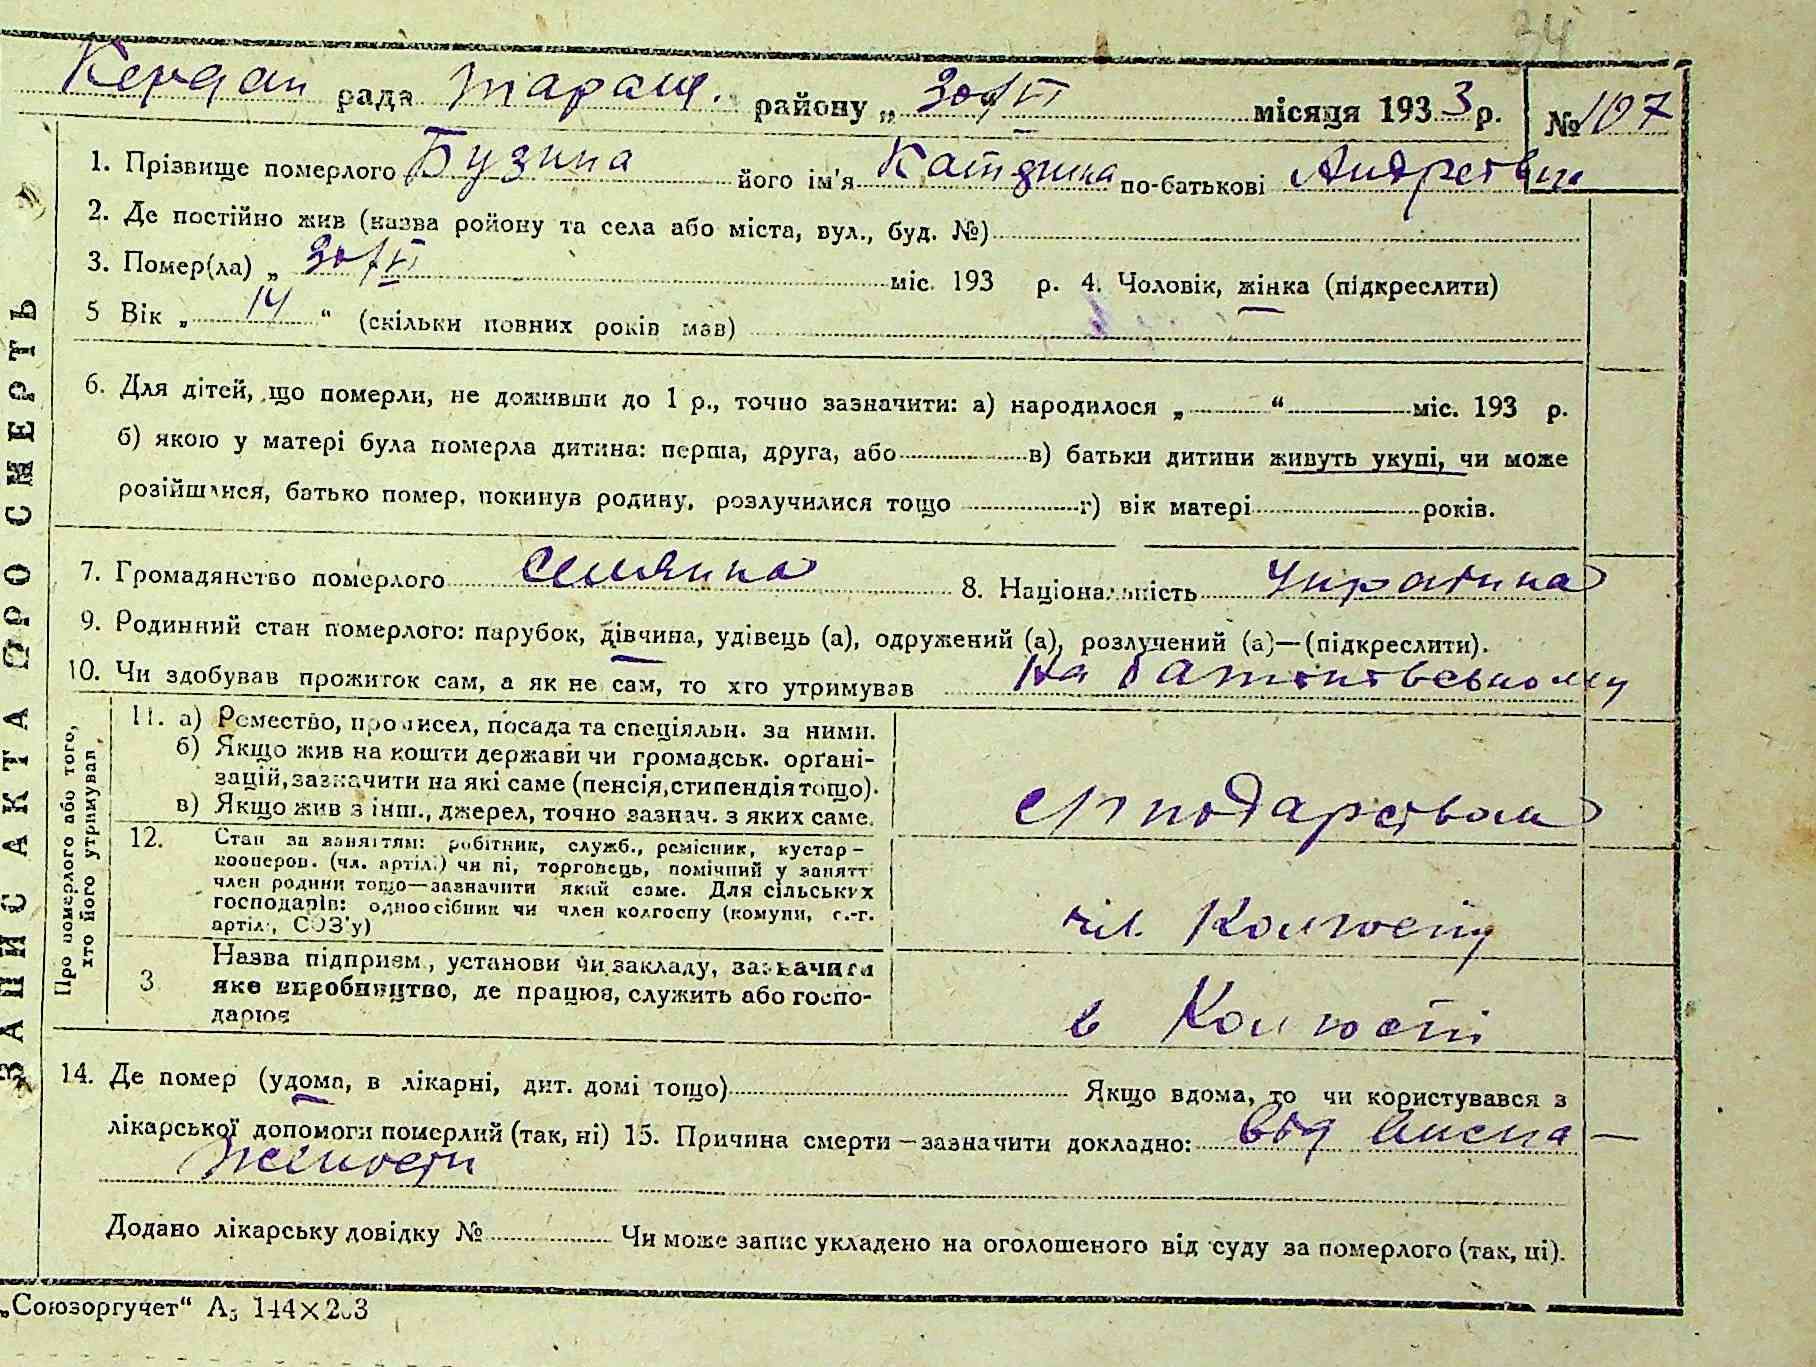 34
рада Таращ. району „ 30/VI місяця 1933 р. № 107
1. Прізвище померлого Бузина його ім'я Катерина по-батькові
2. Де постійно жив (назва ройону та села або міста, вул., буд. №)
3. Помер(ла) „ 30/VI міс. 193 р. 4. Чоловік, жінка (підкреслити)
5 Вік „ 14 “ (скільки повних років мав)
6. Для дітей, що померли, не доживши до 1 р., точно зазначити: а) народилося „ “ міс. 193 р.
б) якою у матері була померла дитина: перша, друга, або в) батьки дитини живуть укупі, чи може
розійшлися, батько помер, покинув родину, розлучилися тощо г) вік матері років.
7. Громадянство померлого селянка 8. Національність Українка
9. Родинний стан померлого: парубок, дівчина, удівець (а), одружений (а), розлучений (а)—(підкреслити).
10. Чи здобував прожиток сам, а як не сам, то хто утримував на
ЗАПИС АКТА ПРО СМЕРТЬ
Про померлого або того,
хто його утримував
11. а) Ремество, промисел, посада та спеціяльн. за ними.
б) Якщо жив на кошти держави чи громадськ. орґані-
зацій, зазначити на які саме (пенсія, стипендія тощо).
в) Якщо жив з інш., джерел, точно зазнач. з яких саме.
12. Стан за заняттям: робітник, служб., ремісник, кустар-
кооперов. (чл. артілі) чи ні, торговець, помічний у занятт
член родини тощо—зазначити який саме. Для сільських
господарів: одноосібник чи член колгоспу (комуни, с.-г.
артілі, СОЗ'у)
чл. Колгоспу
3 Назва підприєм., установи чи закладу, зазначити
яке виробництво, де працює, служить або госпо-
дарює
в Колгоспі
14. Де помер (удома, в лікарні, дит. домі тощо) Якщо вдома, то чи користувався з
лікарської допомоги померлий (так, ні) 15. Причина смерти — зазначити докладно: від висна —
жености
Додано лікарську довідку № Чи може запис укладено на оголошеного від суду за померлого (так, ні).
„Союзоргучет“